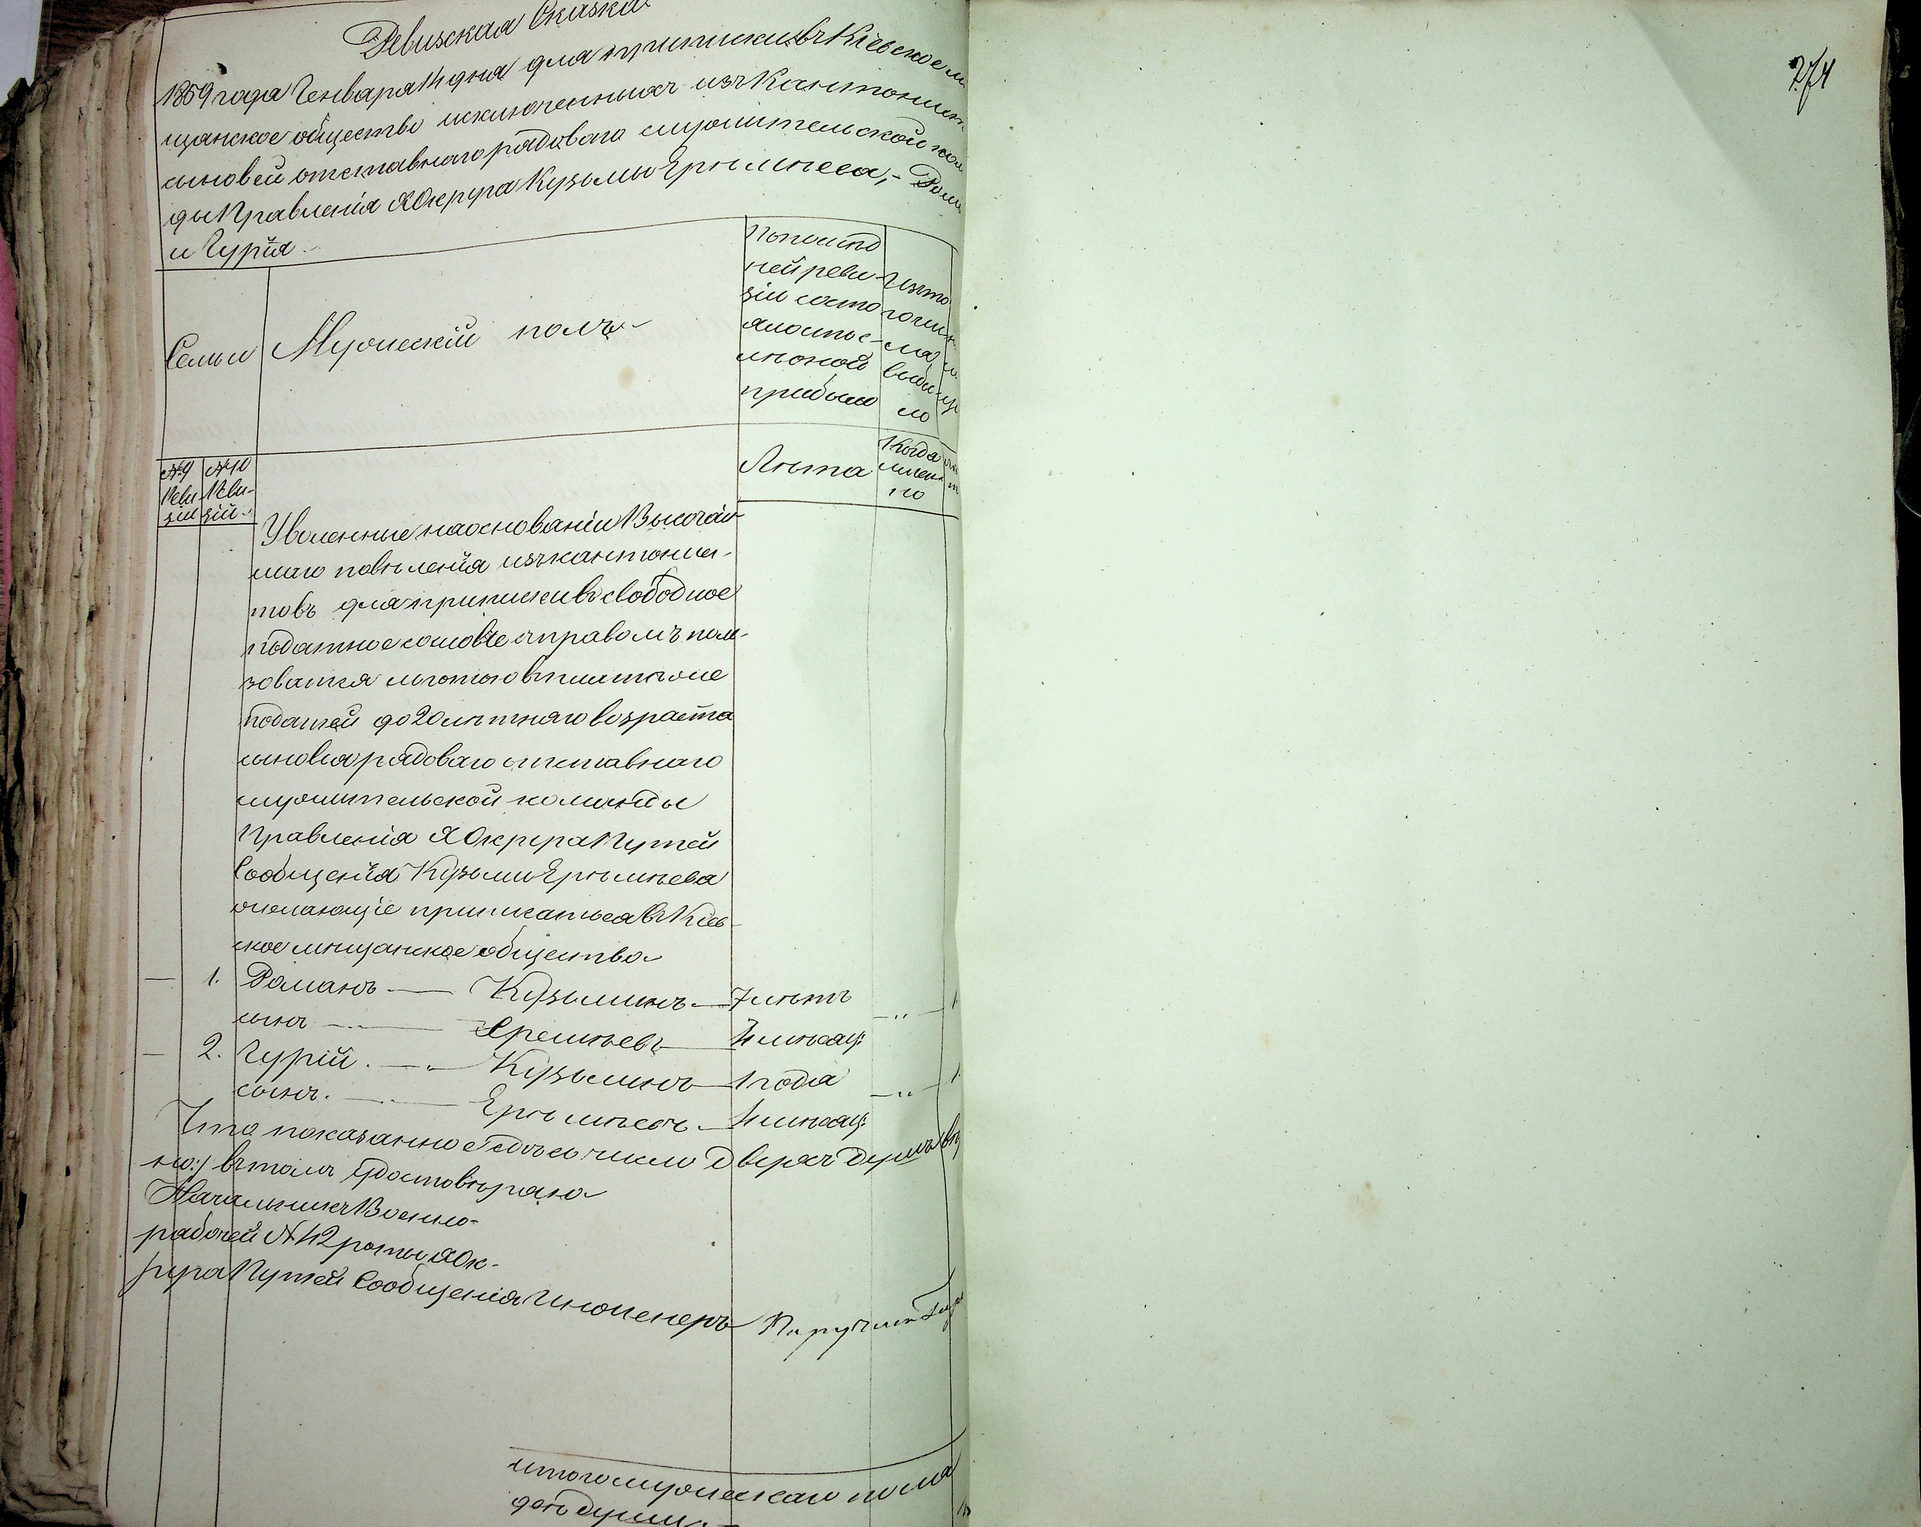 Ревизская Сказка
1859 года Генваря 14 дня для приписки въ Кіевское м
щанское общество исключенныхъ изъ Кантонист
сыновей отставнаго рядоваго служительской ком
ды Правленія Округа Кузьмы Еремѣева, - Рома
и Гурія
Семьи
Мужескій полъ
По послѣд
ней реви
зіи состо
ялость
прибыло
Изъ то
го чис
ла
выбы
ло
№ 9
Реви
зіи
№ 10
Реви-
зіи
Лѣта
Когда
имен
но
Уволенные на основаніи Высочай
шаго повѣленія изъ кантонис-
товъ для приписки въ свободное
податное сословіе съ правомъ поль-
зоватся льготою въ платежѣ
податей до 20 лѣтняго возраста
сыновья рядоваго отставнаго
служительской команды
Правленія Округа Путей
Сообщенія Кузьмы Еремѣева
желающіе приписаться въ Кіев-
ское мѣщанское общество
— 1. Романъ — Кузьминъ — 7 лѣтъ 1
сынъ — Еремѣевъ — 4 мѣсяц:
— 2. Гурій. — Кузьминъ — 1 года 1
сынъ. — Еремѣевъ — 4 мѣсяц:
Что показанное здѣсь число двухъ душъ вѣ
но:/ въ томъ удостовѣряю
Начальникъ Военно-
рабочей № 42 роты Ок-
руга Путей Сообщенія Инженеръ Поручикъ
итого мужескаго пола
двѣ души. -
274